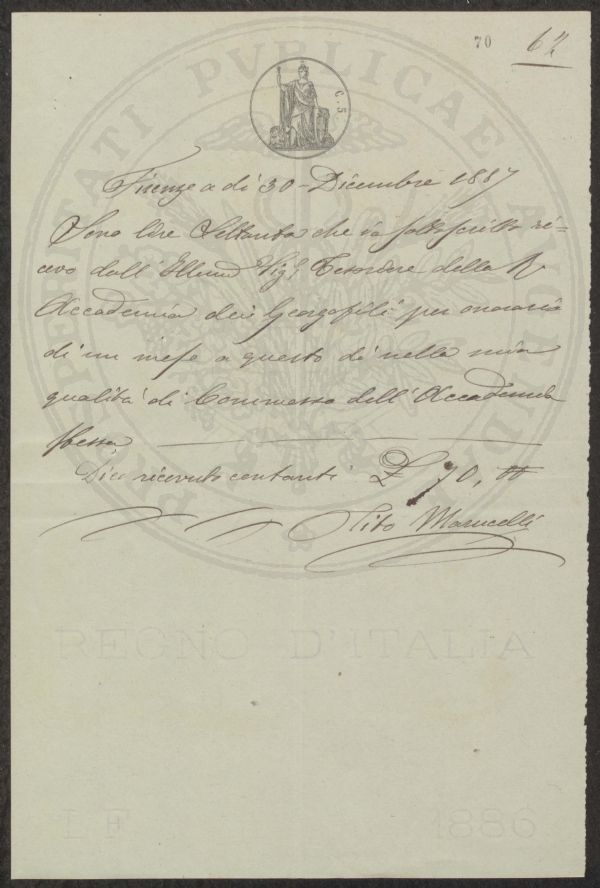 70
62
PROSPERITATI PVBLICAE AVGENDAE
C. 5
Firenze a di 30 Dicembre 1887
Sono lire Settanta che io sottoscritto ri=
cevo dall' Illmo Sigr Tesoriere della R
Accademia dei Georgofili per onorario
di un mese a questo dì nella mia
qualità di Commesso dell' Accademia
stessa
Dico ricevuto contanti £ 70,00
Tito Marucelli
REGNO D'ITALIA
LF 1886